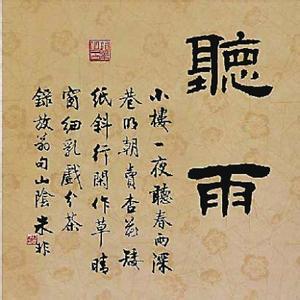 聽雨
小樓一夜聽春雨深
巷明朝賣杏花矮
紙斜行閑作草晴
窗細乳戲分茶
錄放翁句山陰